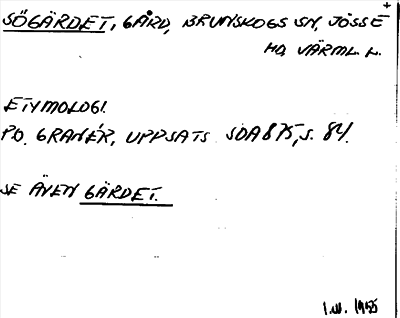 SÖGÄRDET, GÅRD, BRUNSKOGS SN, JÖSSE
HD, VÄRML. L.
ETYMOLOGI.
PO. GRANÉR, UPPSATS SOA 875, S. 84.
SE ÄVEN GÄRDET.
1955